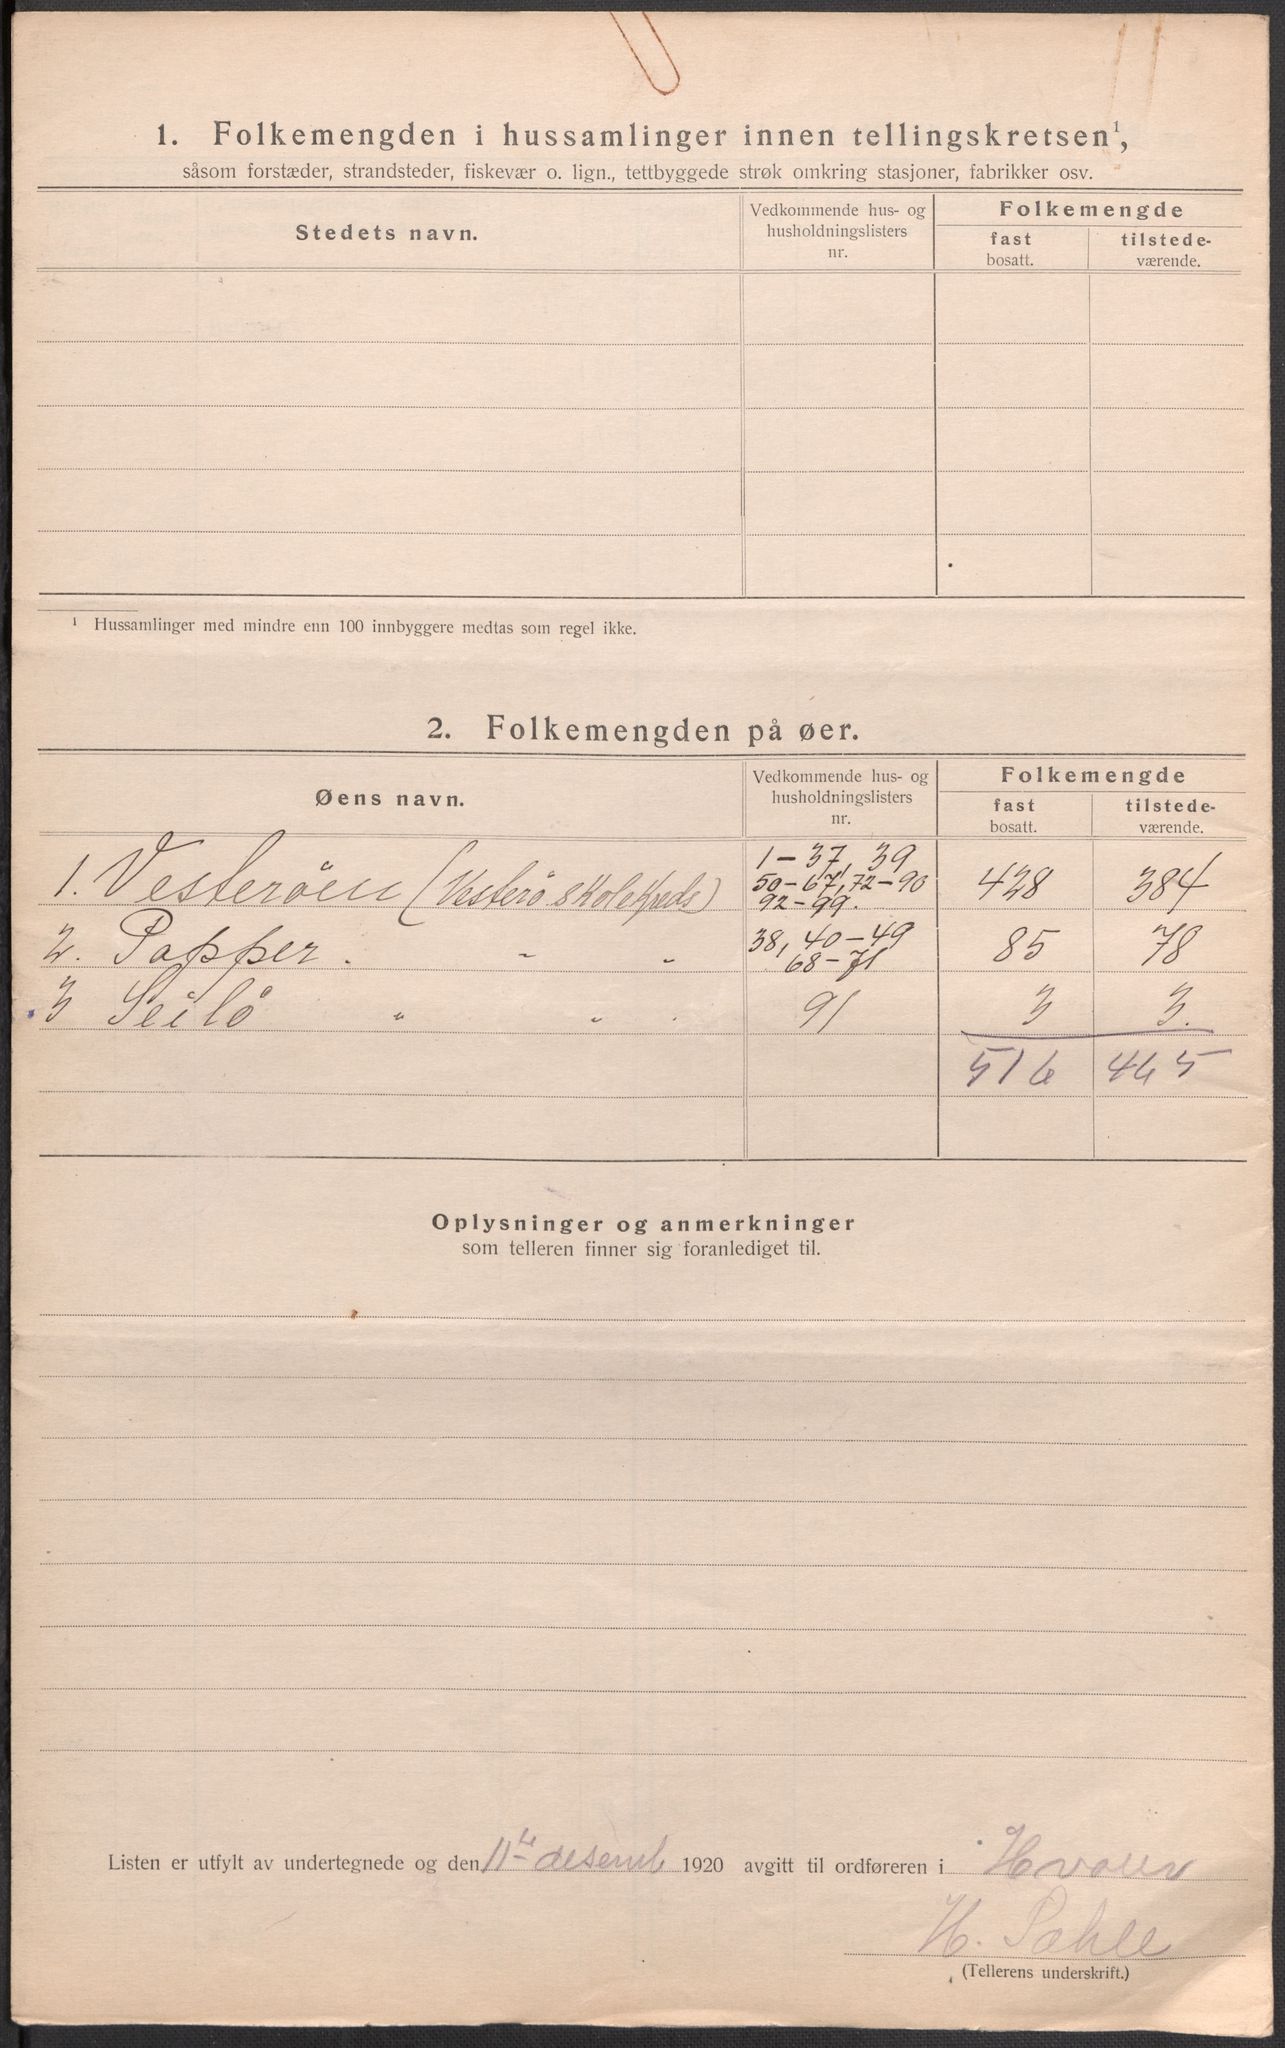 1. Folkemengden i hussamlinger innen tellingskretsen¹,
såsom forstæder, strandsteder, fiskevær o. lign., tettbyggede strøk omkring stasjoner, fabrikker osv.
Stedets navn.
Vedkommende hus- og
husholdningslisters
nr.
Folkemengde
fast
bosatt.
tilstede-
værende.
¹ Hussamlinger med mindre enn 100 innbyggere medtas som regel ikke.
2. Folkemengden på øer.
Øens navn.
Vedkommende hus- og
husholdningslisters
nr.
Folkemengde
fast
bosatt.
tilstede-
værende.
1. Vesteröen (Vesterö skolekreds) 1-37, 39 428 384
50-67, 72-90
92-99.
2. Papper. " " 38, 40-49 85 78
68-71
3 Seilö " " 91 3 3.
516 465
Oplysninger og anmerkninger
som telleren finner sig foranlediget til.
Listen er utfylt av undertegnede og den 11te desemb 1920 avgitt til ordføreren i Hvaler
H. Pahle
(Tellerens underskrift.)